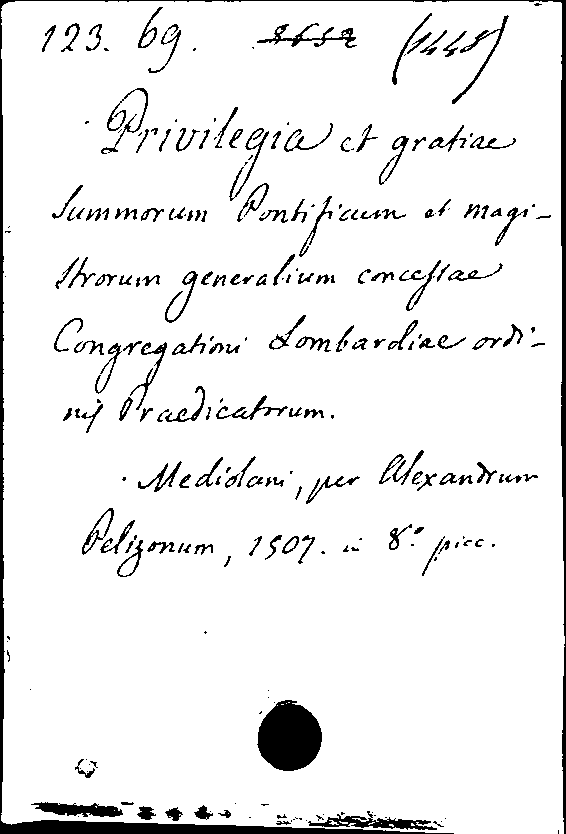 123. 69. (1448)
Privilegia et gratiae
Summorum Pontificum et magi-
strorum generalium concessae
Congregationi Lombardiae ordi-
nis Praedicatorum.
Mediolani, per Alexandrum
Pelizonum, 1507. in 8.° picc.